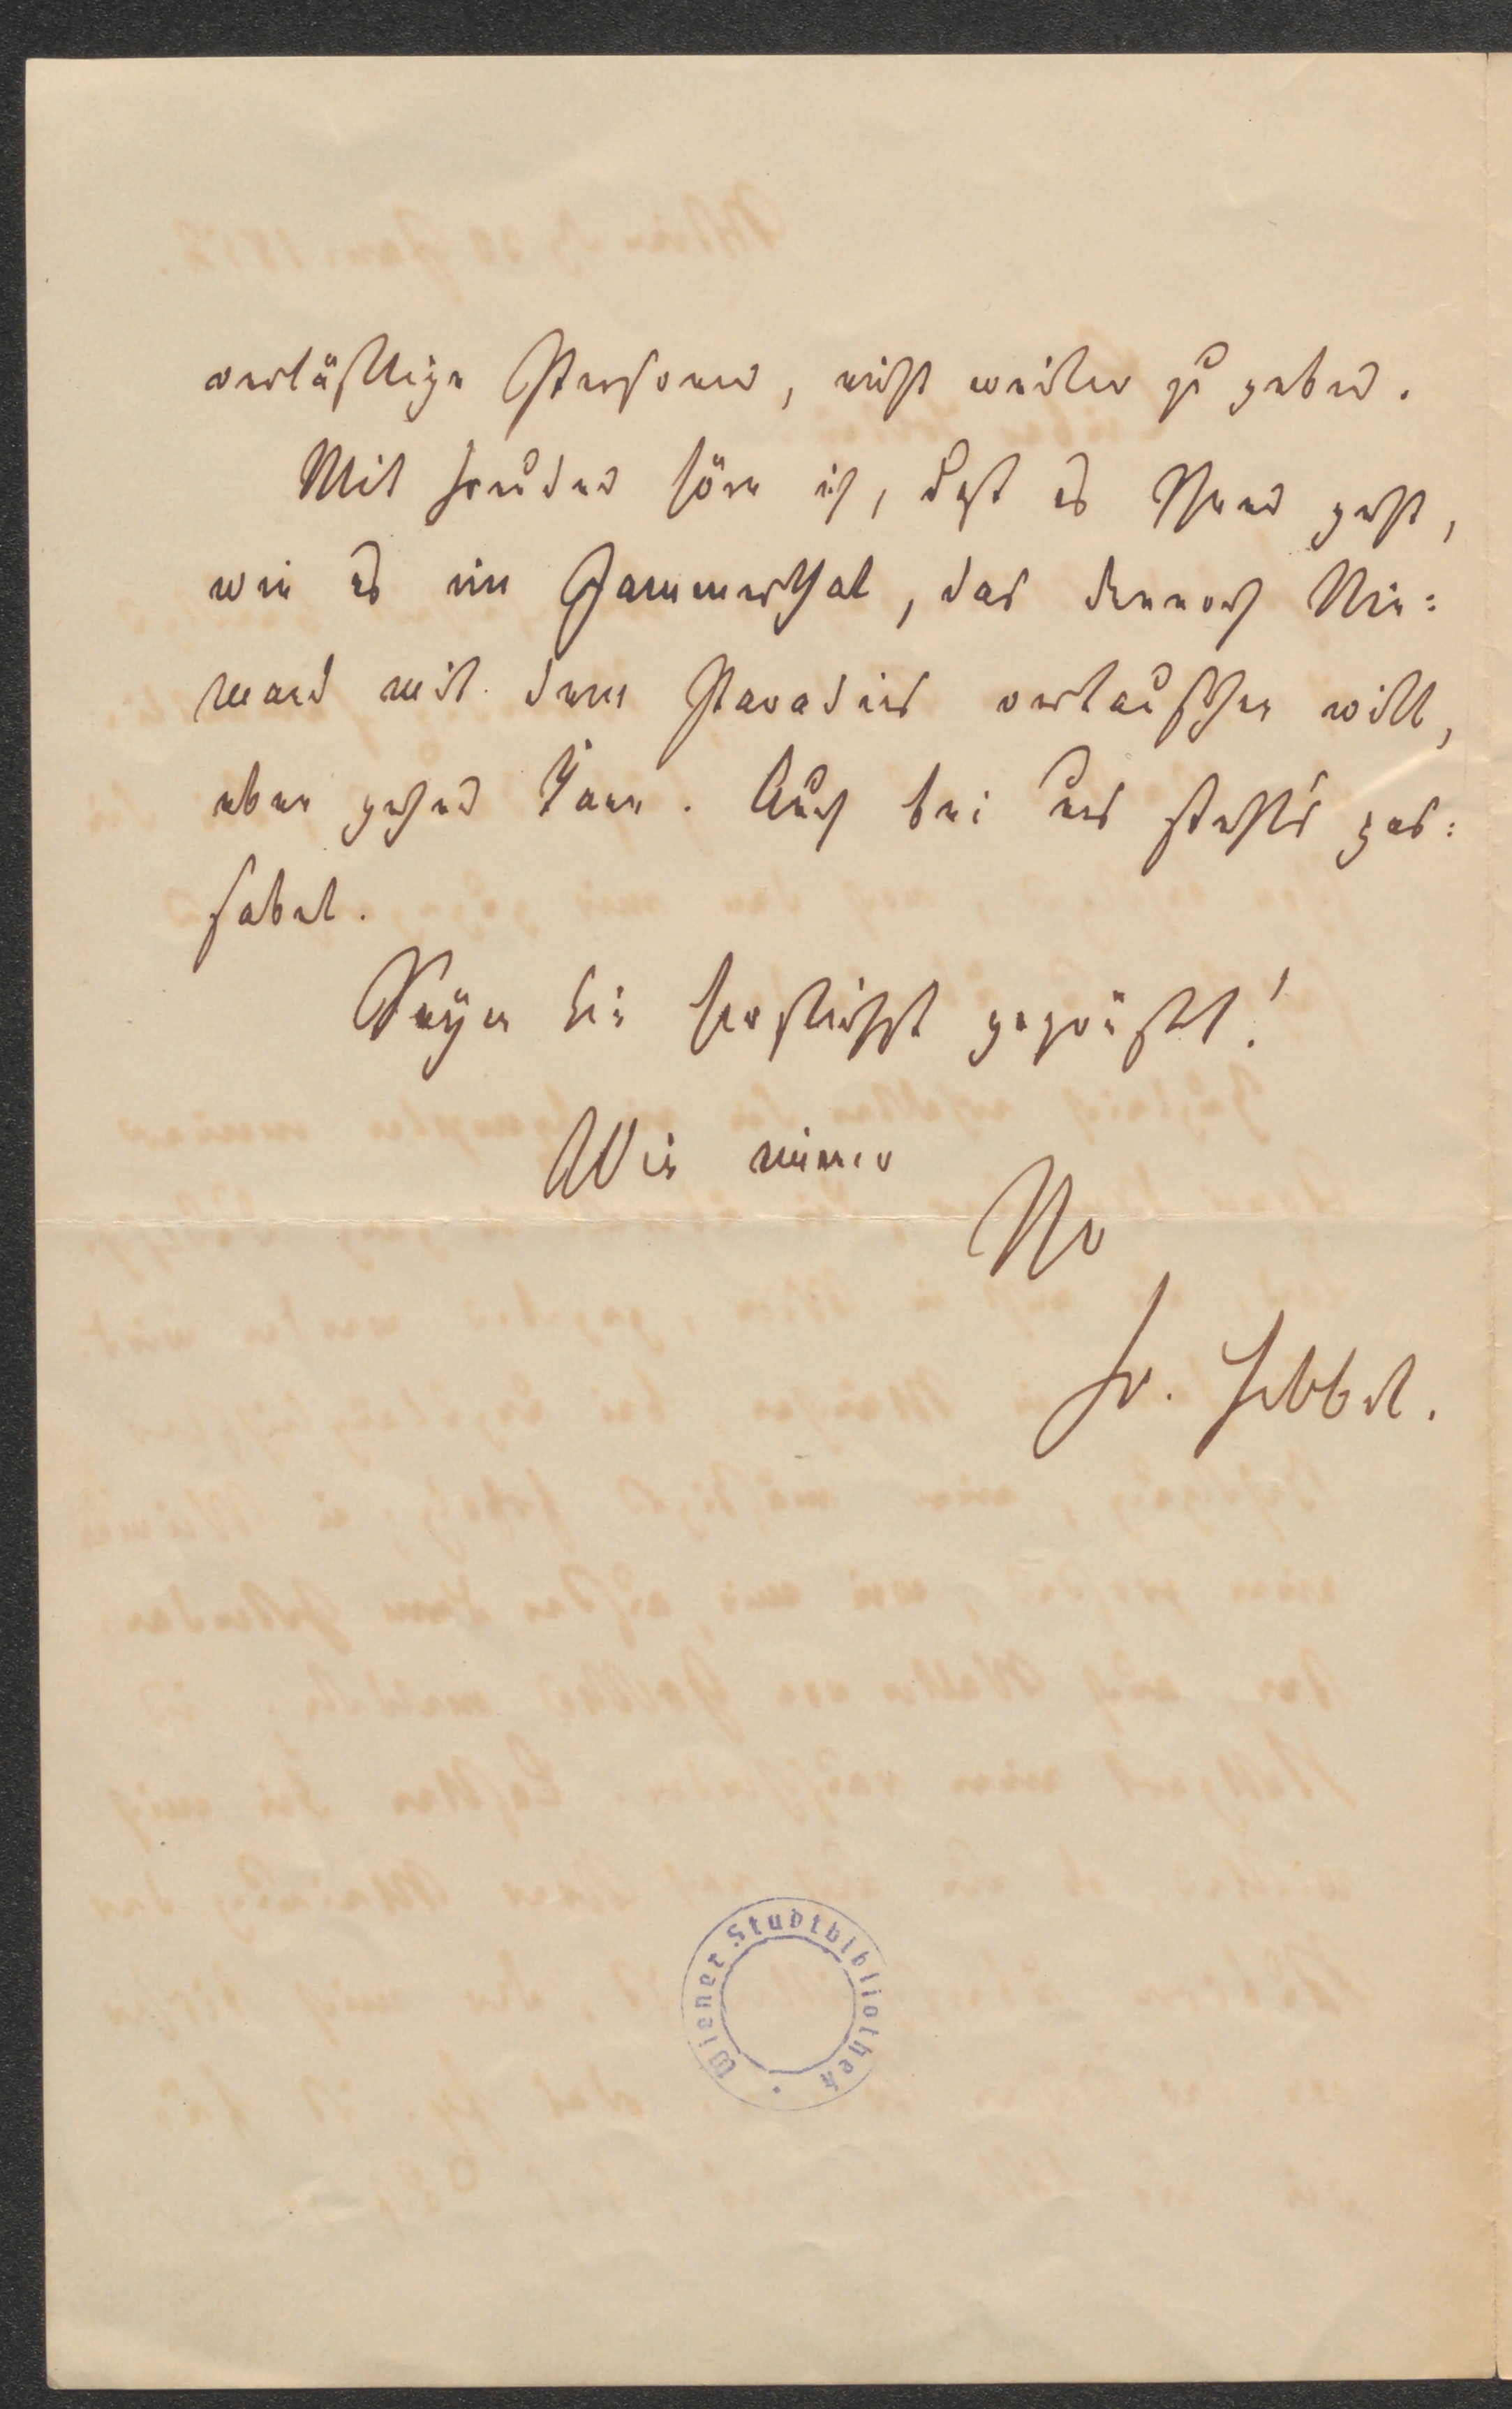 verläßliche Personen, nicht weiter zu geben.
Mit Freuden höre ich, daß es Ihnen geht,
wie es im Jammerthal, das dennoch Nie=
mand mit dem Paradies vertauschen will,
eben gehen kann. Auch bei uns steht's pas=
sabel.
Seyen Sie herzlichst gegrüßt!
Wie immer
Ihr
Fr. Hebbel.
Wiener Stadtbibliothek